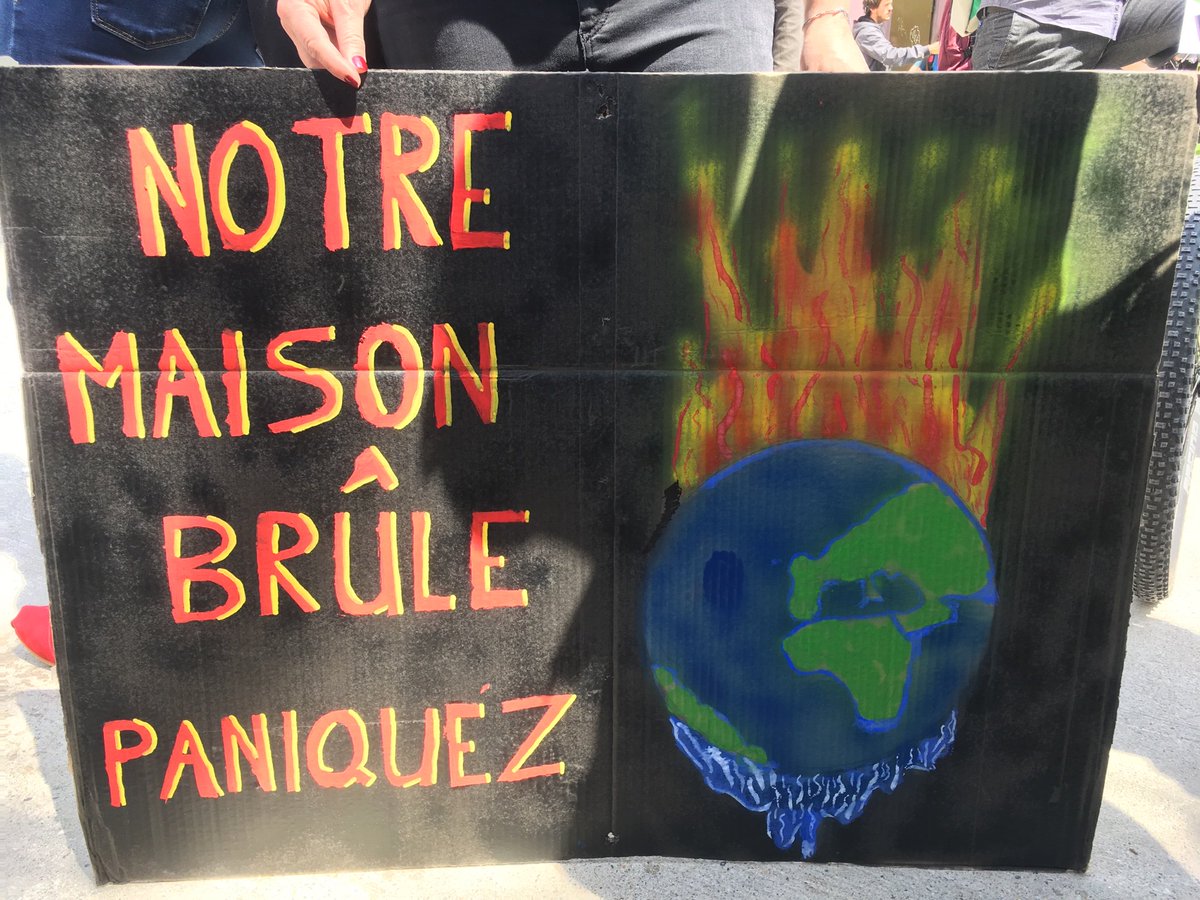 NOTRE
MAISON
BRÛLE
PANIQUÉZ